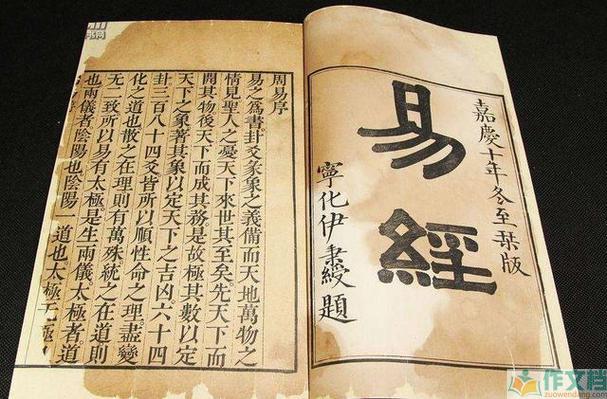 嘉慶十年冬至栞版
易經
寧化伊秉綬題
周易序
易之爲書卦爻彖象之義備而天地萬物之
情見聖人之憂天下來世其至矣先天下而
開其物後天下而成其務是故極其數以定
天下之象著其象以定天下之吉凶六十四
卦三百八十四爻皆所以順性命之理盡變
化之道也散之在理則有萬殊統之在道則
无二致所以易有太極是生兩儀太極者道
也兩儀者陰陽也陰陽一道也太極无極
作文档
zuowendang.com